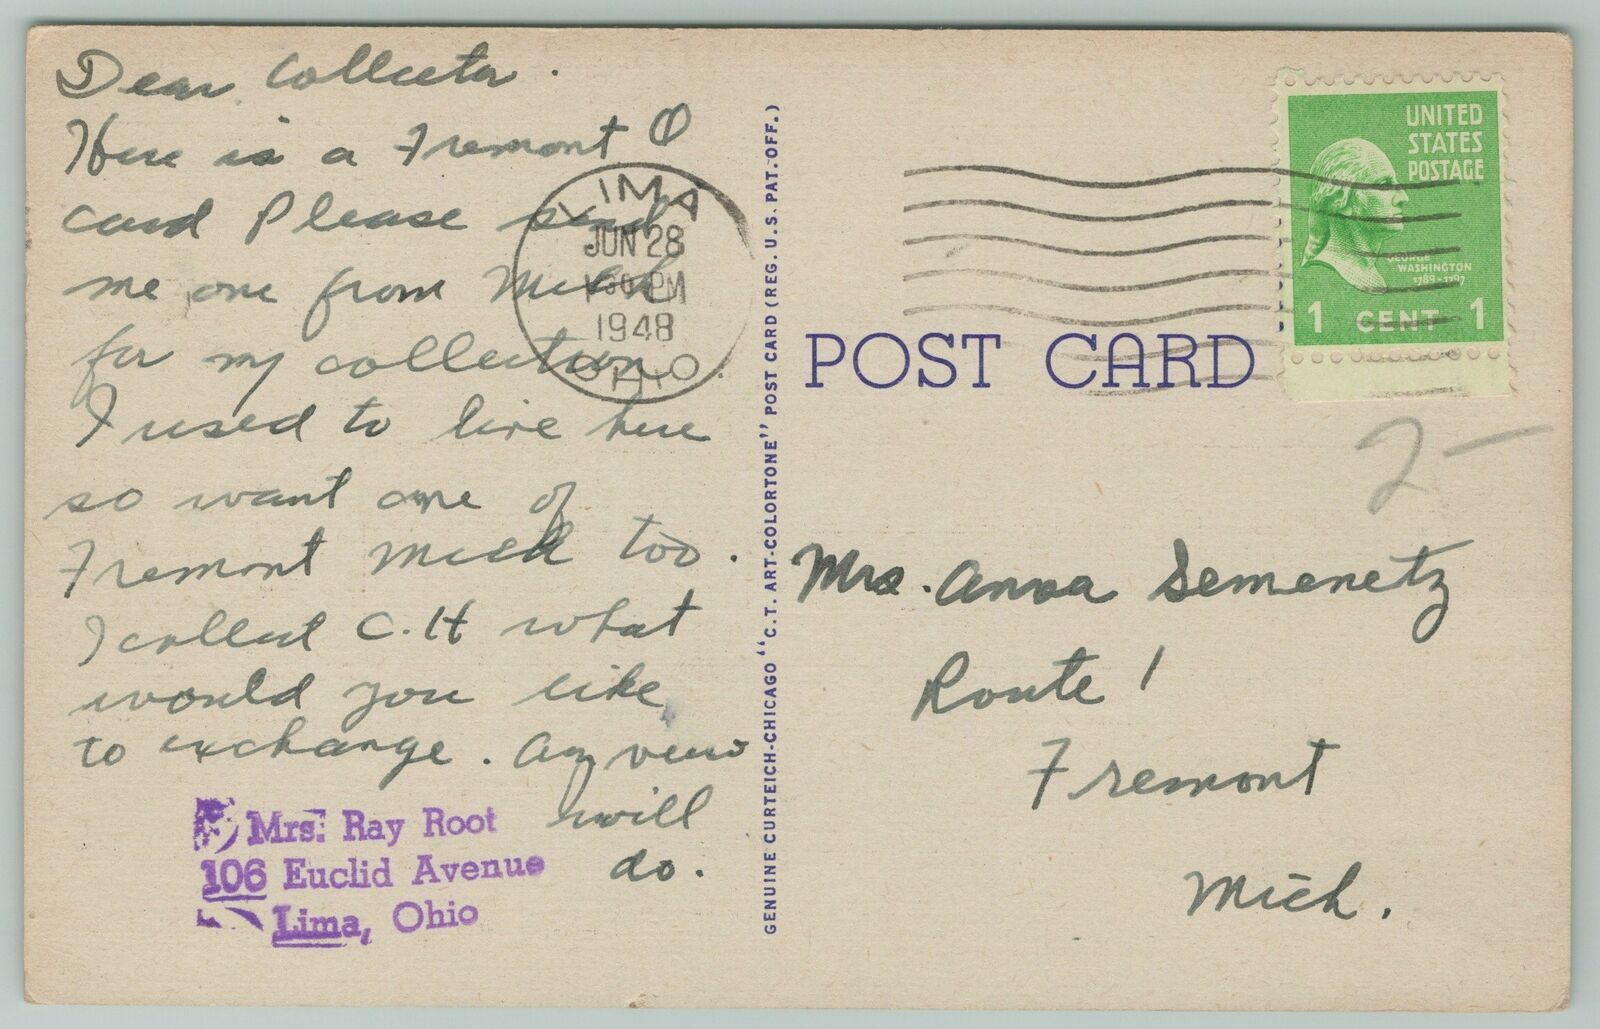 Dear Collector.
Here is a Fremont O
card Please send
me one from Mich
for my collection.
I used to live here
so want one of
Fremont Mich too.
I collect C.H what
would you like
to exchange. Any view
will
do.
Mrs. Ray Root
106 Euclid Avenue
Lima, Ohio
LIMA
JUN 28
PM
1948
OHIO
GENUINE CURTEICH-CHICAGO "C.T. ART-COLORTONE" POST CARD (REG. U.S. PAT. OFF.)
POST CARD
UNITED
STATES
POSTAGE
GEORGE
WASHINGTON
1789-1797
1 CENT 1
2-
Mrs. Anna Semenetz
Route 1
Fremont
Mich.